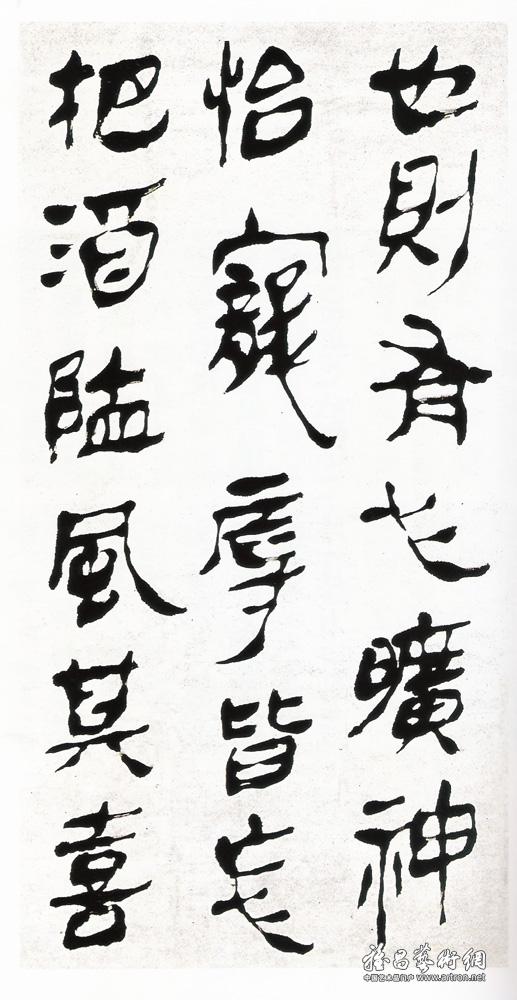 也則有心曠神
怡寵辱皆忘
把酒臨風其喜
雅昌藝術網
中国艺术品门户 www.artron.net